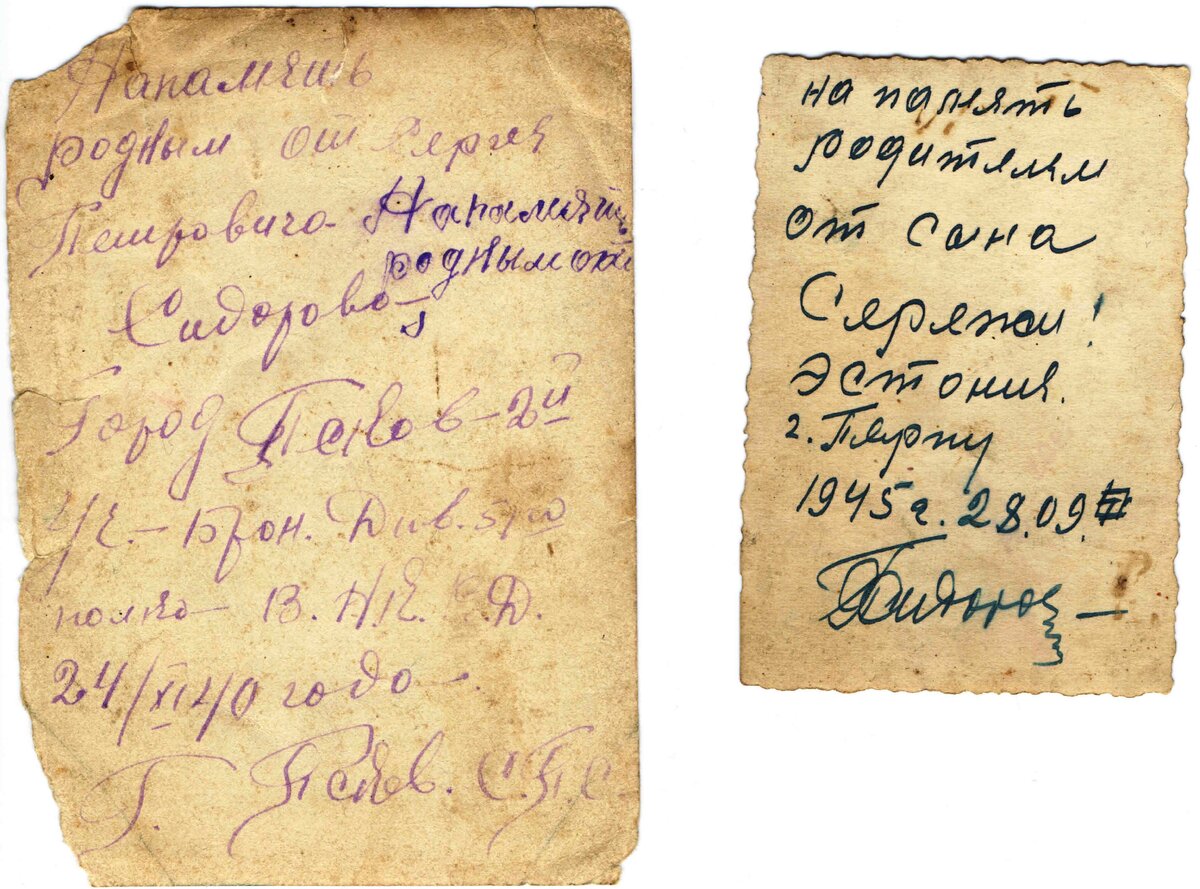 Напамять
родным от Сергея
Петровича
Напамять
родным от
Сидорова
Город Псков - 2й
Брон. Див.
полка В.Н.К.В.Д.
24/XI 40 года
Г. Псков. С.П.С.
на память
родителям
от сына
Сережи!
Эстония.
г. Пярну
1945 г. 28.09.
Сидоров